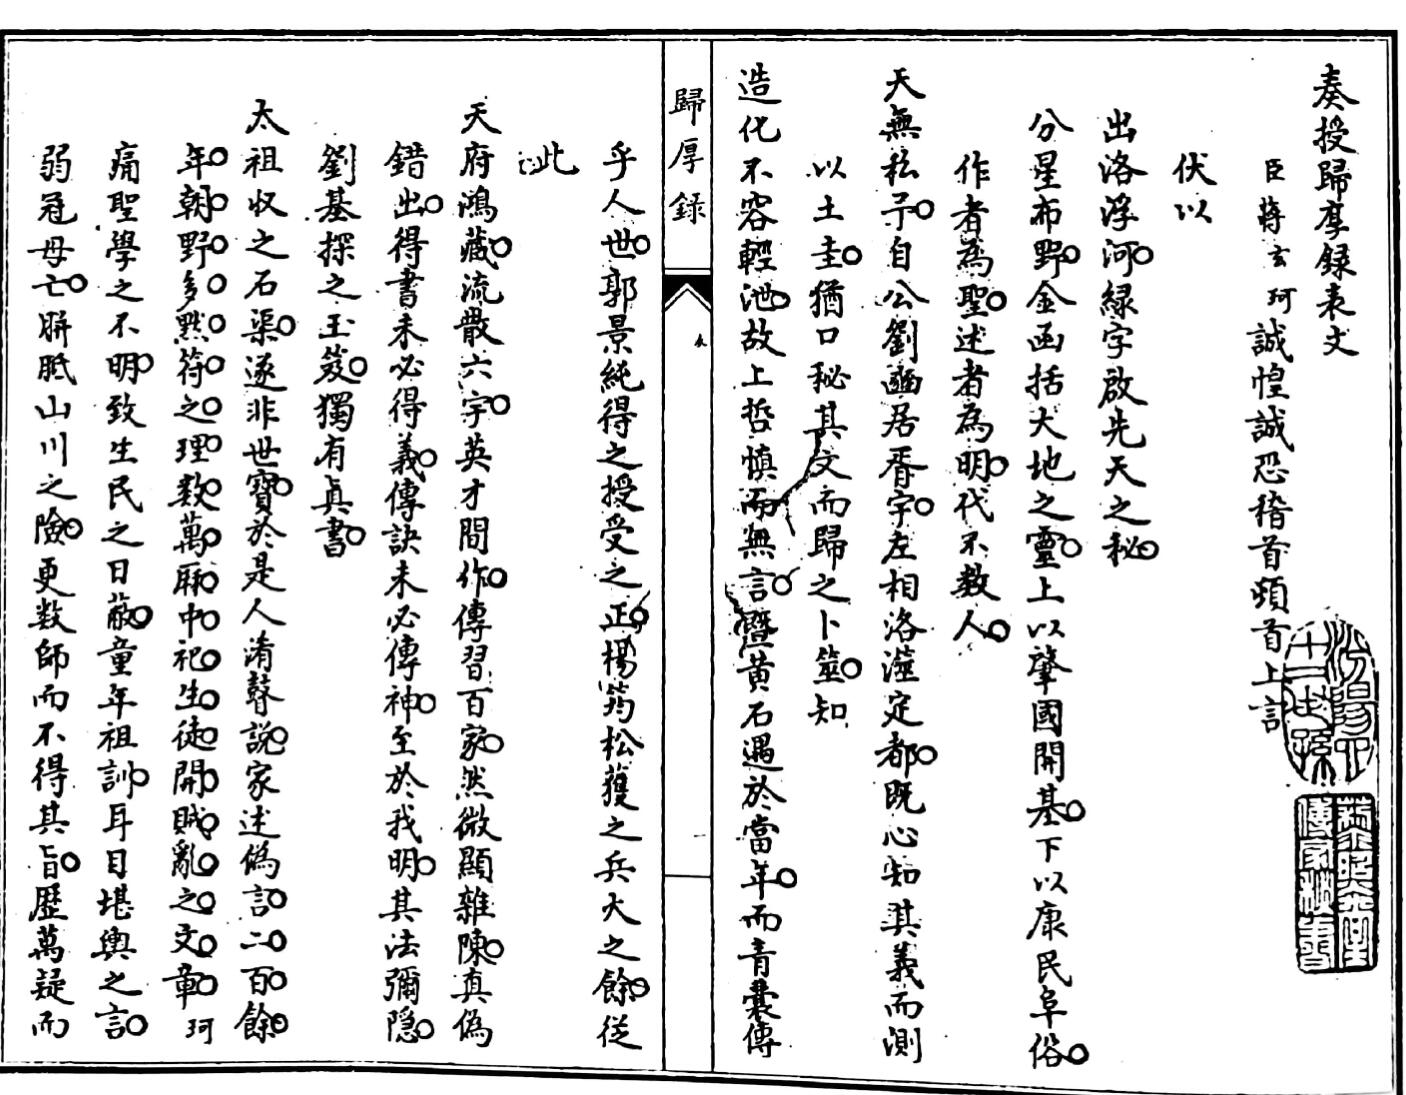 奏授歸厚錄表文
臣蔣玄珂誠惶誠恐稽首頓首上言
伏以
出洛浮河綠字啟先天之秘
分星布野金函括大地之靈上以肇國開基下以康民阜俗
作者為聖述者為明代不数人
天無私予自公劉豳居胥宇左相洛瀍定都既心知其義而測
以土圭猶口秘其文而歸之卜筮知
造化不容輕泄故上哲慎而無言暨黄石遇於當年而青囊傳
歸厚錄
表
一
乎人世郭景純得之授受之正楊筠松獲之兵火之餘從
此
天府鴻藏流散六宇英才間作傳習百家然微顯雜陳真偽
錯出得書未必得義傳訣未必傳神至於我明其法彌隠
劉基探之玉笈獨有真書
太祖収之石渠遂非世寶於是人淆瞽説家述偽言二百餘
年朝野多黙符之理数萬厤中祀生徒開賊亂之文章珂
痛聖學之不明致生民之日蔽童年祖訓耳目堪輿之言
弱冠母亡胼胝山川之險更数師而不得其旨歷萬疑而
十二世孫
傳家秘書